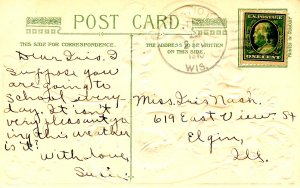 POST CARD.
THIS SIDE FOR CORRESPONDENCE.
THE ADDRESS TO BE WRITTEN ON THIS SIDE
1910
WIS.
U.S. POSTAGE
ONE CENT
Dear Iris. I
suppose you
are going to
school every
day. It isn't
very pleasant go
ing this weather
is it?
With love,
Miss. Iris Nash.
619 East View St
Elgin,
Ill.